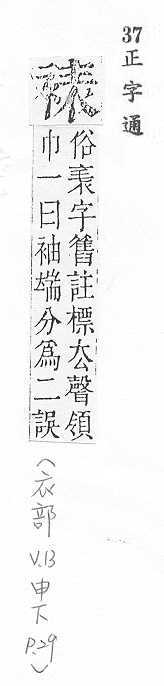 37 正字通
裱
俗表字舊註標厺聲領
巾一曰袖端分爲二誤
(衣部 V.13 申下 P.29)